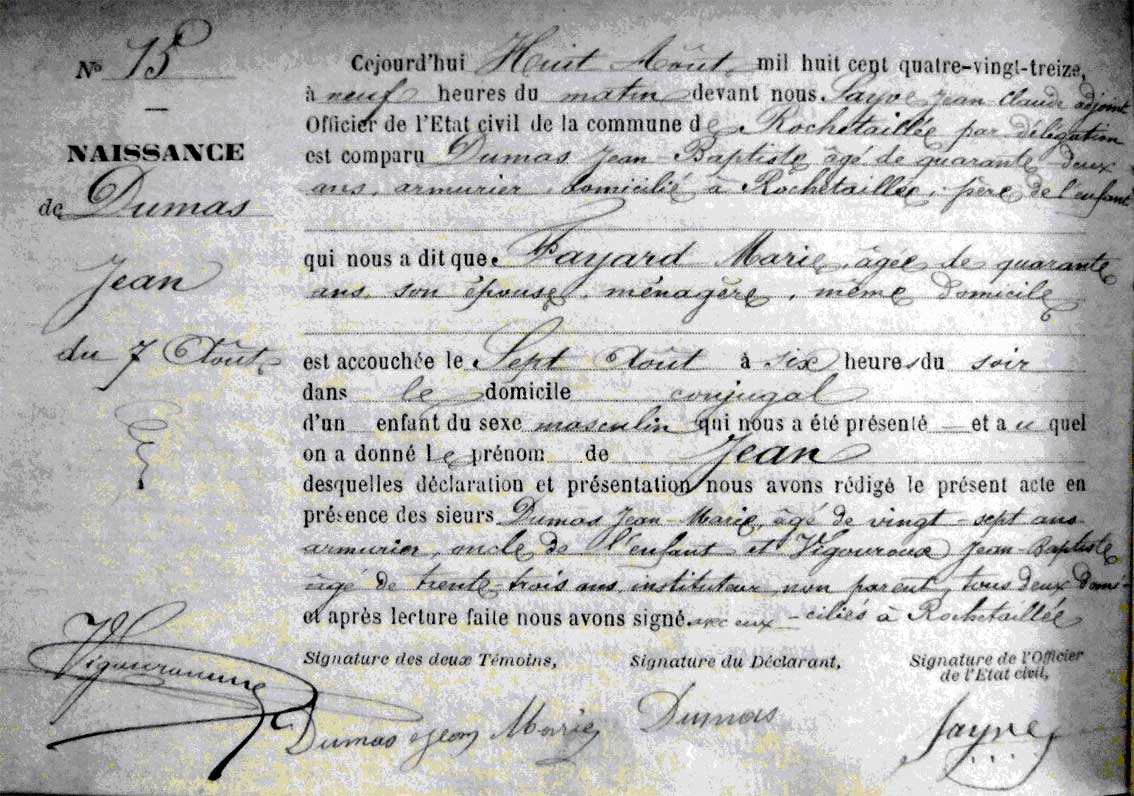 N° 15
NAISSANCE
de Dumas
Jean
du 7 Août
Cejourd'hui Huit Août, mil huit cent quatre-vingt-treize,
à neuf heures du matin devant nous Sayve Jean-Claude adjoint
Officier de l'Etat civil de la commune de Rochetaillée par délégation
est comparu Dumas Jean-Baptiste âgé de quarante deux
ans, armurier, domicilié à Rochetaillée, père de l'enfant
qui nous a dit que Fayard Marie, âgée de quarante
ans, son épouse, ménagère, même domicile
est accouchée le Sept Août à six heures du soir
dans le domicile conjugal
d'un enfant du sexe masculin qui nous a été présenté — et au quel
on a donné le prénom de Jean
desquelles déclaration et présentation nous avons rédigé le présent acte en
présence des sieurs Dumas Jean-Marie, âgé de vingt-sept ans
armurier, oncle de l'enfant et Vigouroux Jean-Baptiste
âgé de trente-trois ans, instituteur, non parent, tous deux domi-
et après lecture faite nous avons signé avec eux -ciliés à Rochetaillée
Signature des deux Témoins, Signature du Déclarant, Signature de l'Officier
de l'Etat civil,
Vigouroux
Dumas Jean Marie Dumas Sayve